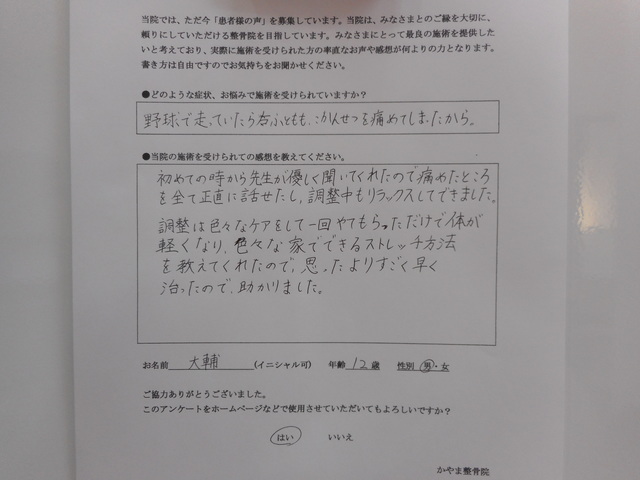 当院では、ただ今「患者様の声」を募集しています。当院は、みなさまとのご縁を大切に、
頼りにしていただける整骨院を目指しています。みなさまにとって最良の施術を提供した
いと考えており、実際に施術を受けられた方の率直なお声や感想が何よりの力となります。
書き方は自由ですのでお気持ちをお聞かせください。
●どのような症状、お悩みで施術を受けられていますか？
野球で走っていたら右ふともも、こかんせつを痛めてしまったから。
●当院の施術を受けられての感想を教えてください。
初めての時から先生が優しく聞いてくれたので痛めたところ
を全て正直に話せたし、調整中もリラックスしてできました。
調整は色々なケアをして一回やてもらっただけで体が
軽くなり、色々な家でできるストレッチ方法
を教えてくれたので、思ったよりすごく早く
治ったので、助かりました。
お名前 大輔 (イニシャル可) 年齢 12歳 性別 男・女
ご協力ありがとうございました。
このアンケートをホームページなどで使用させていただいてもよろしいですか？
はい いいえ
かやま整骨院